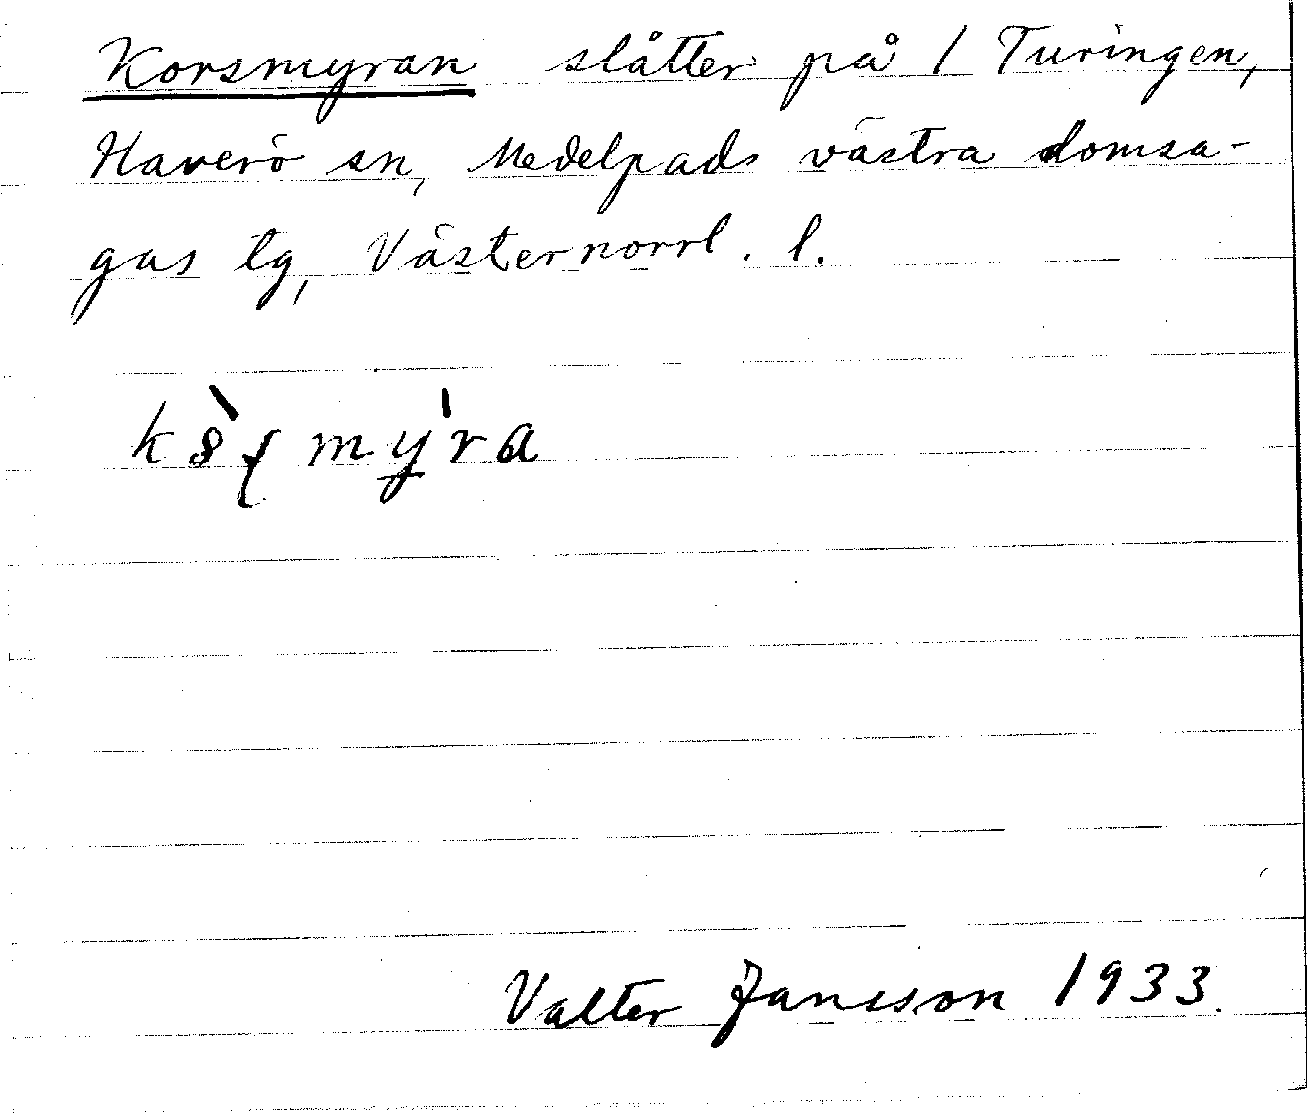 Korsmyran slåtter på 1 Turingen,
Haverö sn, Medelpads västra domsa-
gas tg, Västernorrl. l.
Valter Jansson 1933.